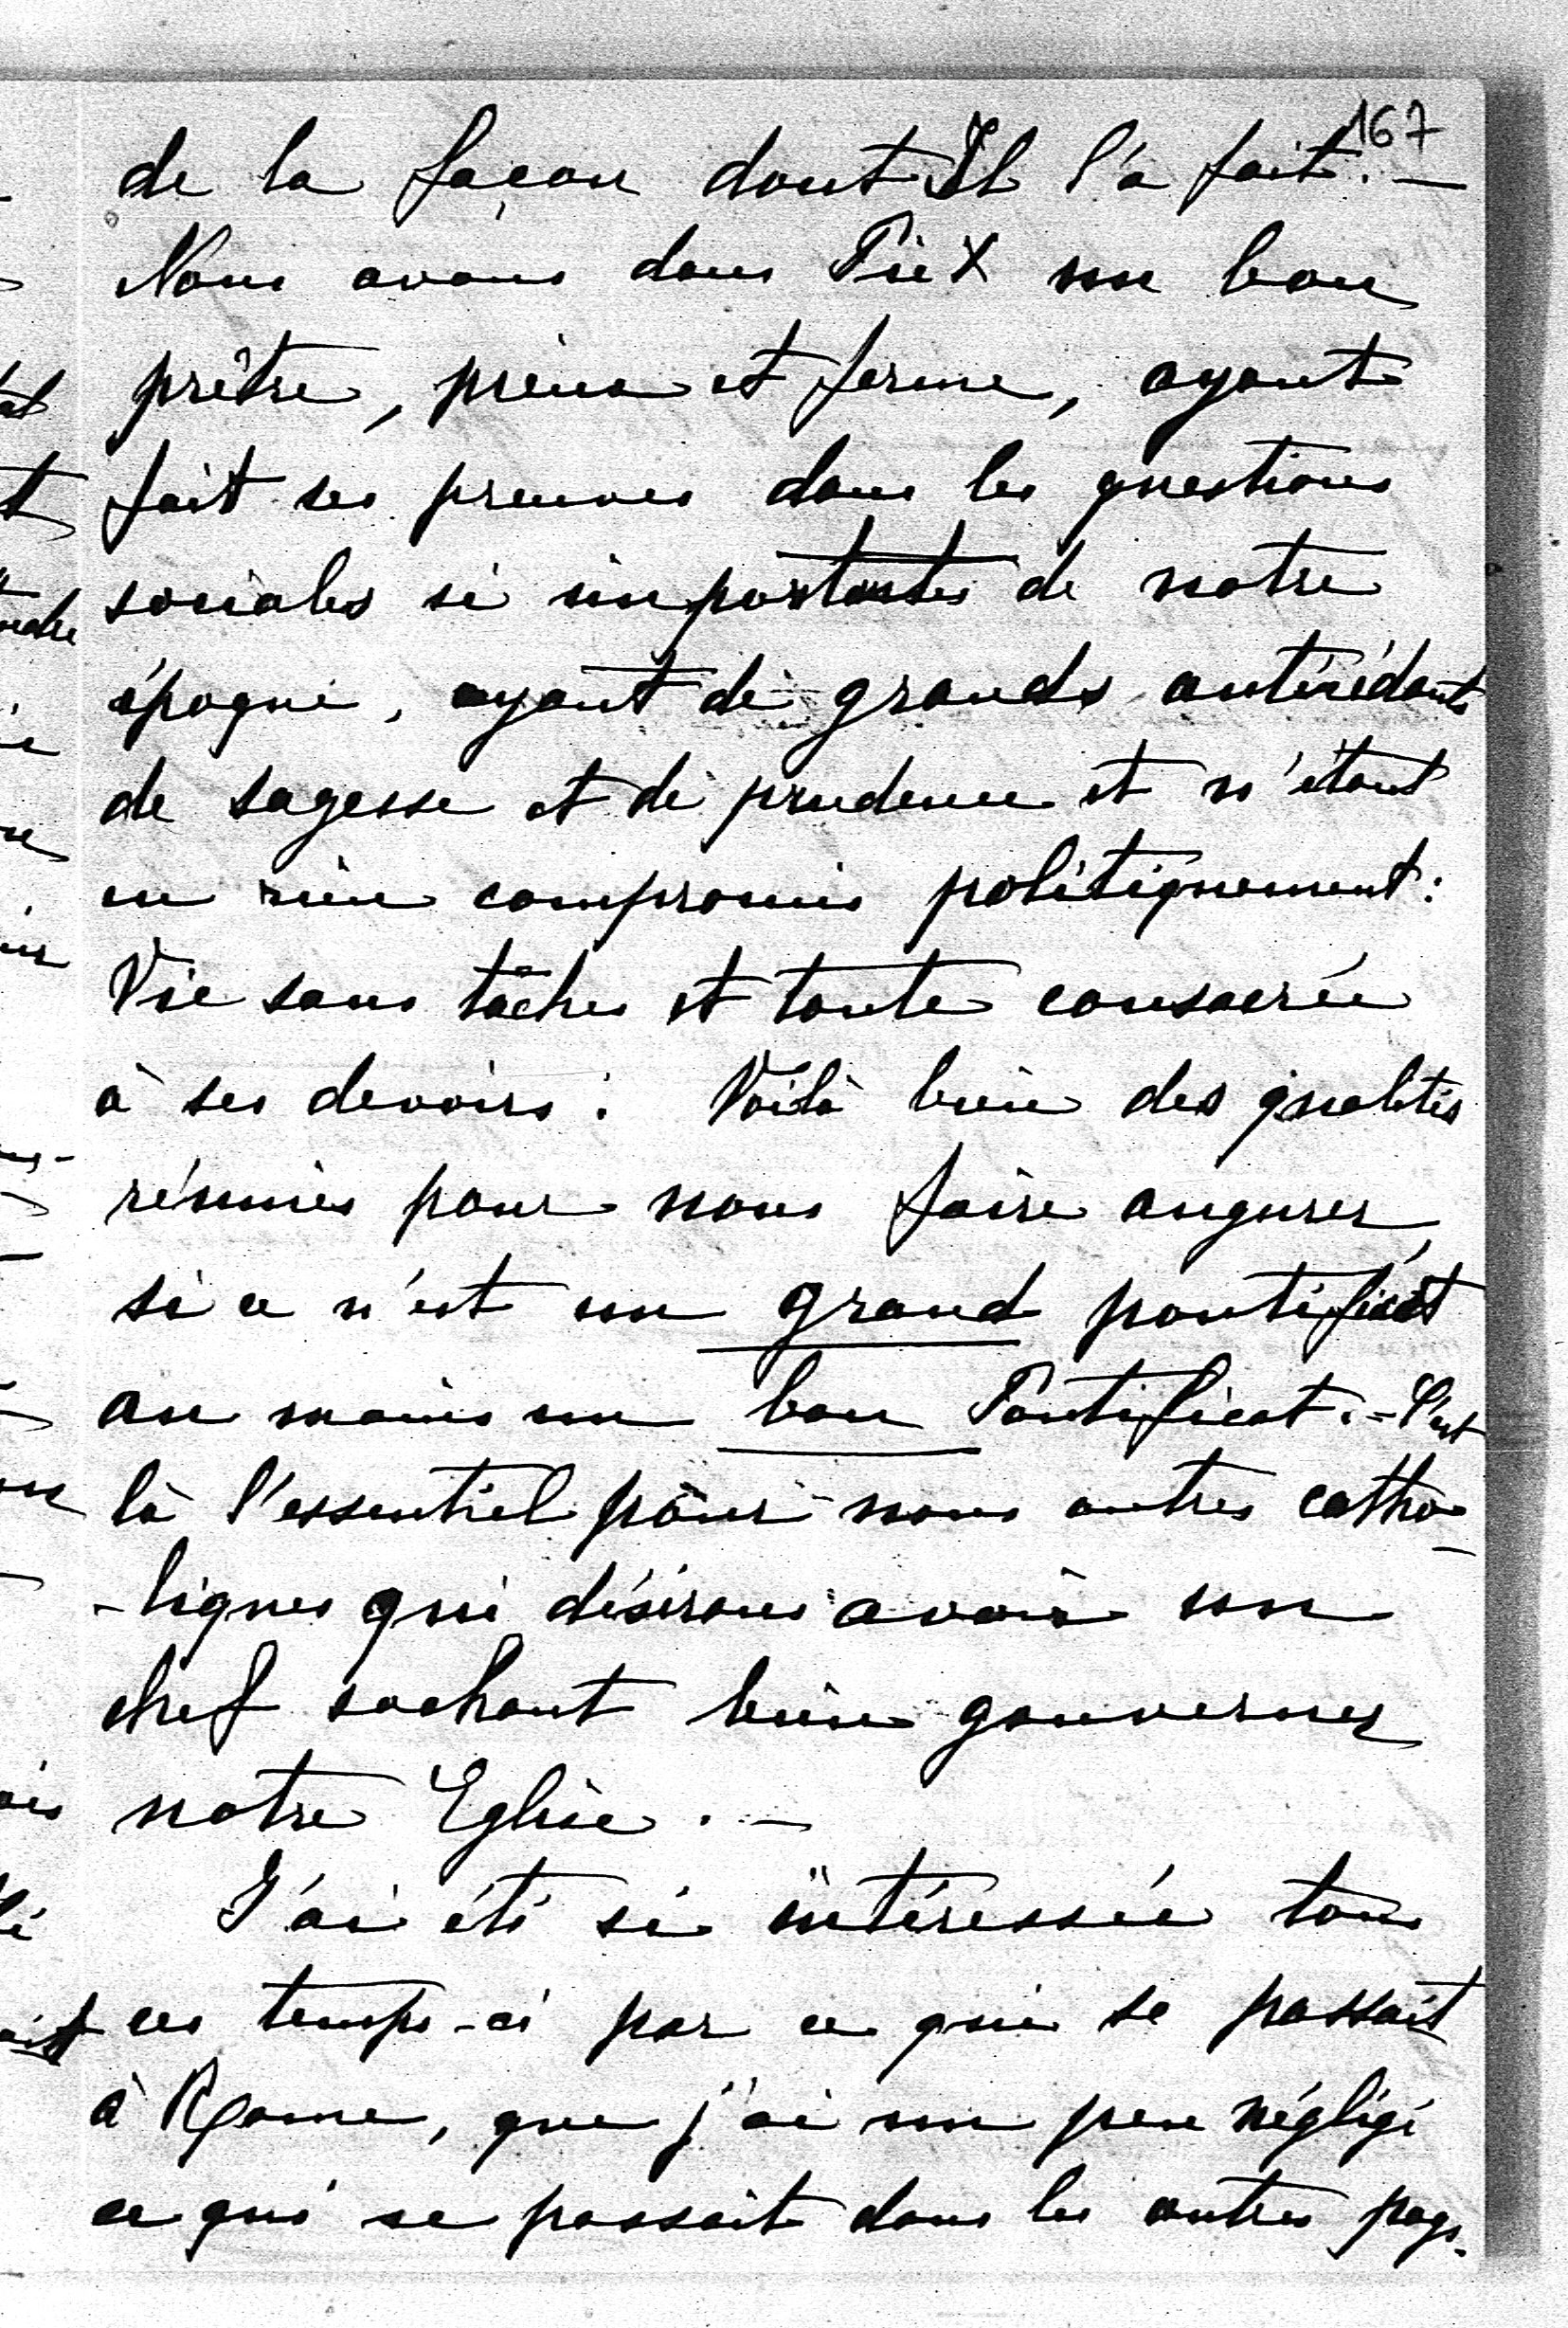 167
de la façon dont Il l'a fait. —
Nous avons dans Pie X un bon
prêtre, pieux et ferme, ayant
fait ses preuves dans les questions
sociales si importantes de notre
époque, ayant de grands antécédants
de sagesse et de prudence et n'étant
en rien compromis politiquement :
Vie sans tâches et toute consacrée
à ses devoirs : Voilà bien des qualités
réunies pour nous faire augurer
si ce n'est un grand pontificat
au moins un bon Pontificat. - C'est
là l'essentiel pour nous autres catho-
-liques qui désirons avoir un
chef sachant bien gouverner
notre Eglise. —
J'ai été si intéressée tous
ces temps-ci par ce qui se passait
à Rome, que j'ai un peu négligé
ce qui se passait dans les autres pays.